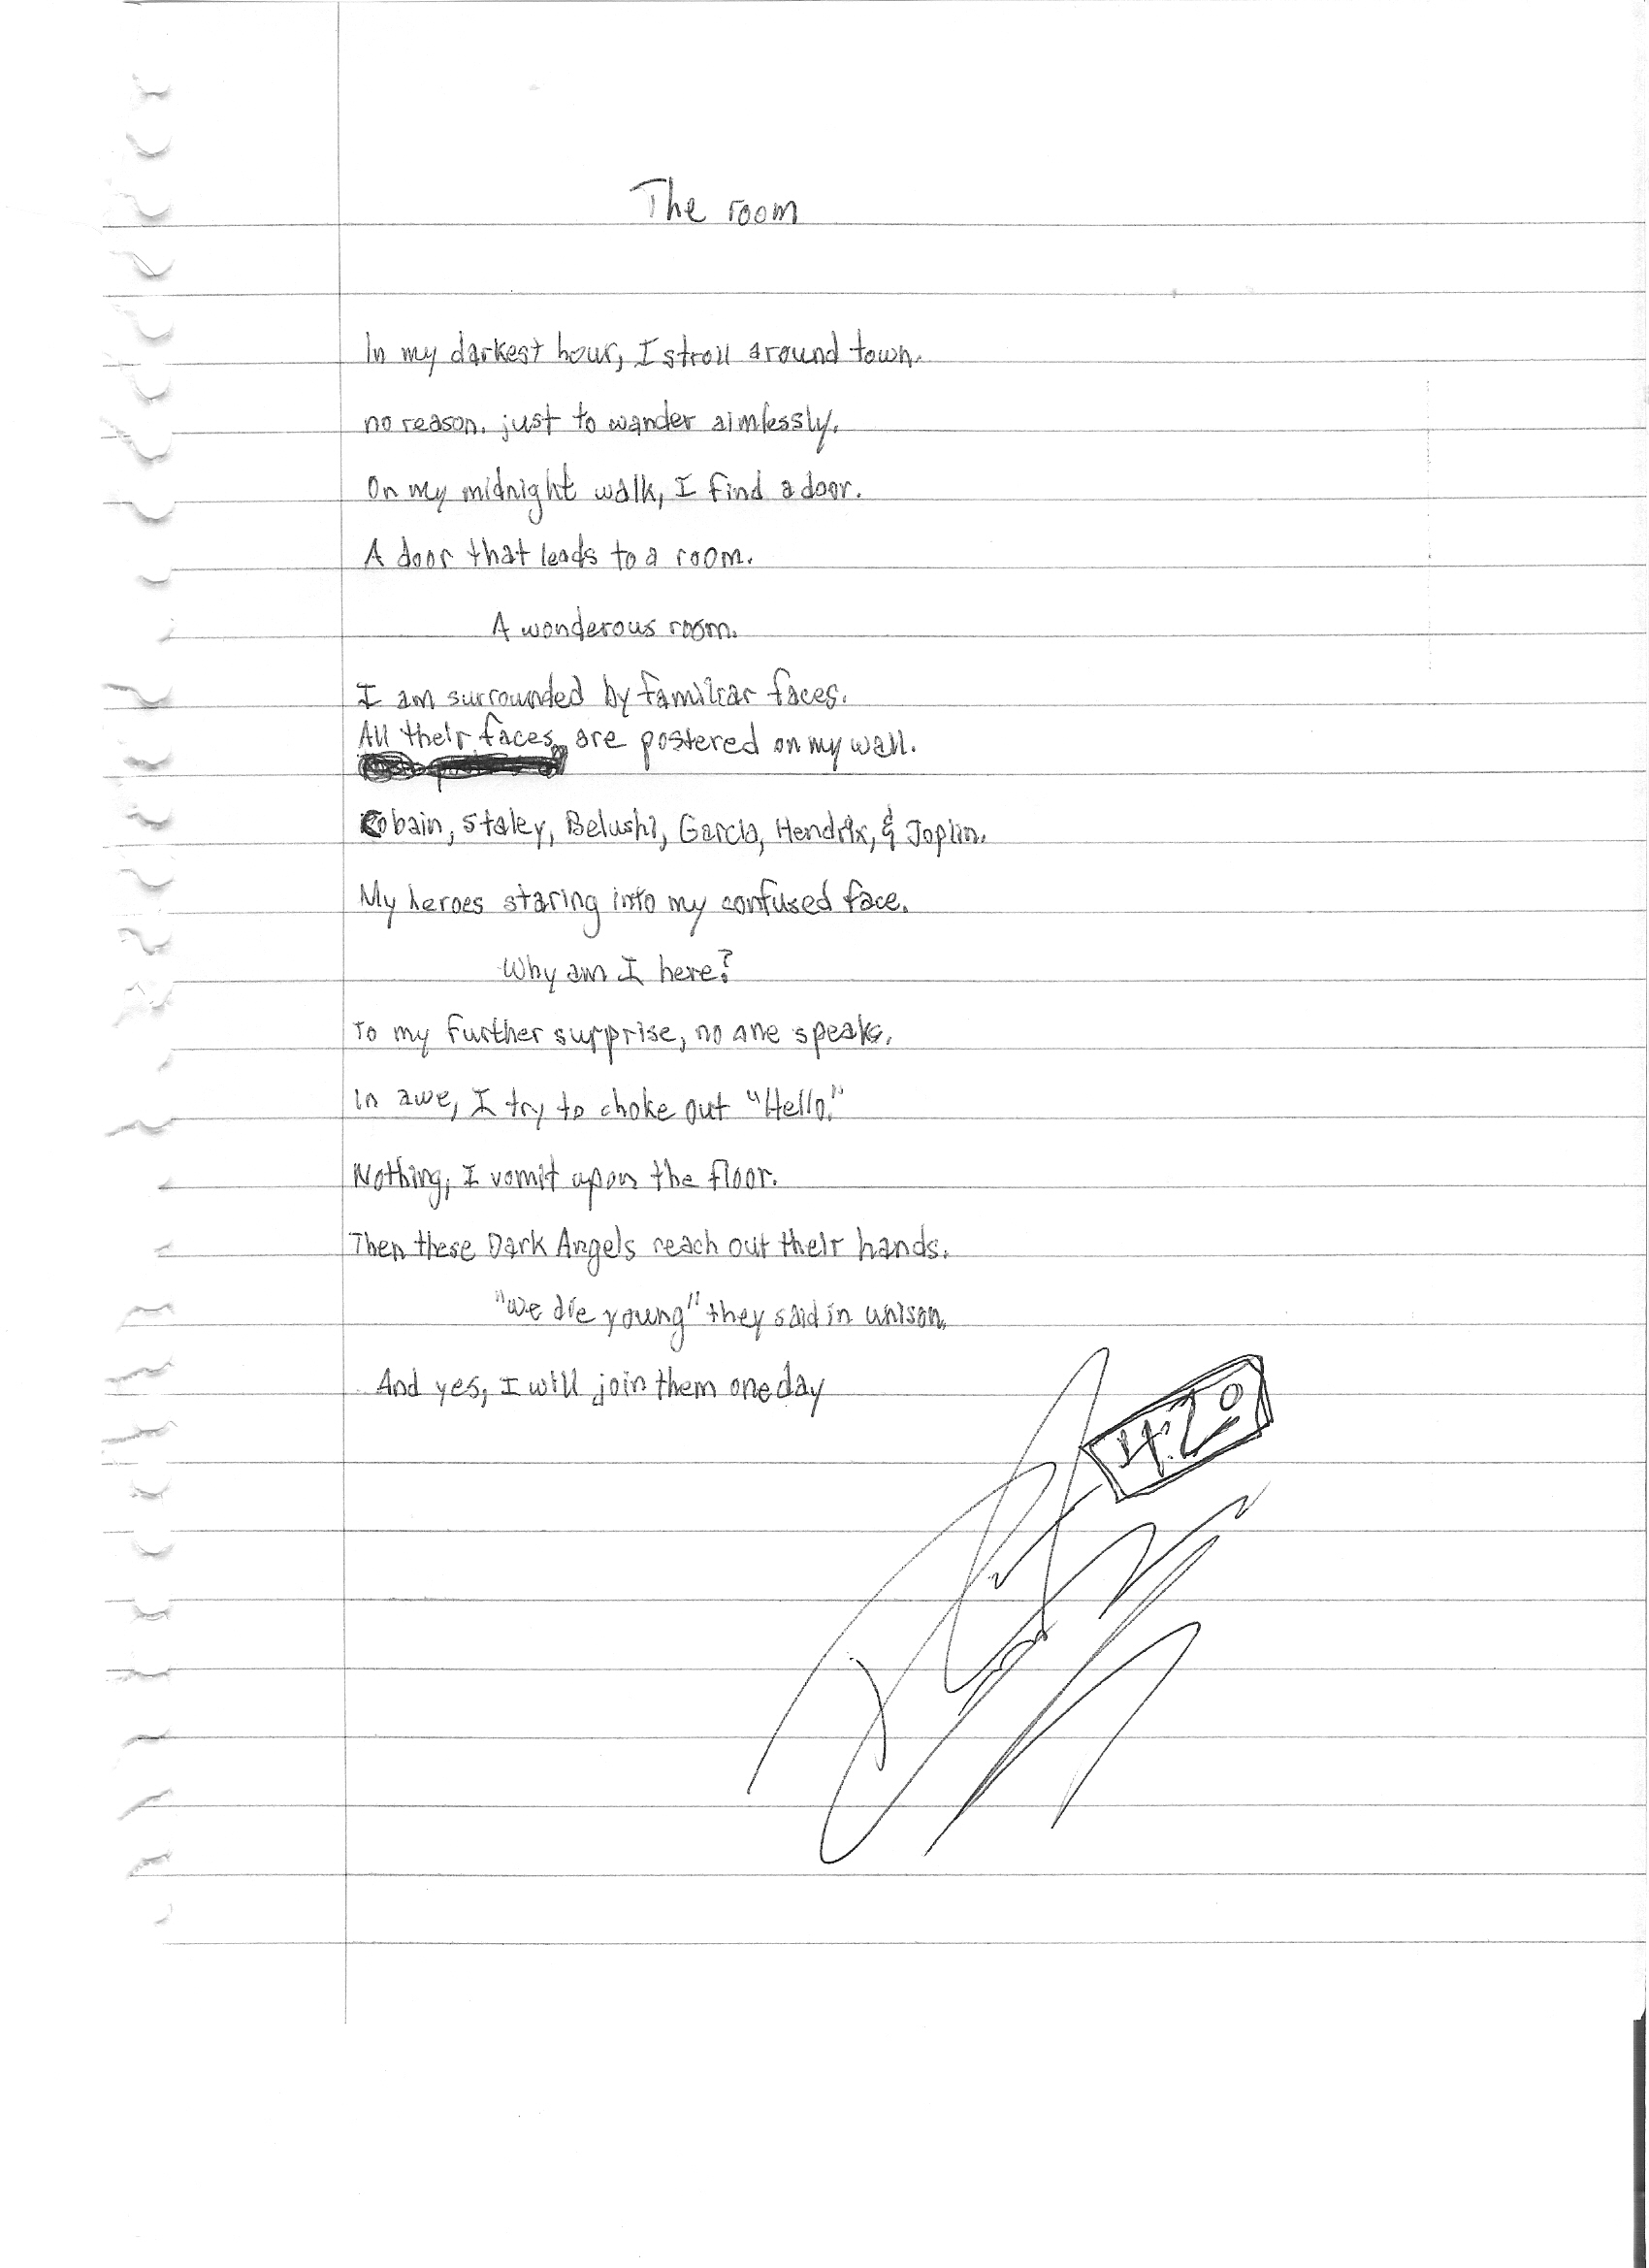 The room
In my darkest hour, I stroll around town.
no reason. just to wander aimlessly.
On my midnight walk, I find a door.
A door that leads to a room.
A wonderous room.
I am surrounded by familiar faces.
All their faces are postered on my wall.
Cobain, Staley, Belushi, Garcia, Hendrix, & Joplin.
My heroes staring into my confused face.
Why am I here?
To my further surprise, no one speaks.
In awe, I try to choke out "Hello."
Nothing, I vomit upon the floor.
Then these Dark Angels reach out their hands.
"We die young" they said in unison.
And yes, I will join them one day
4:20